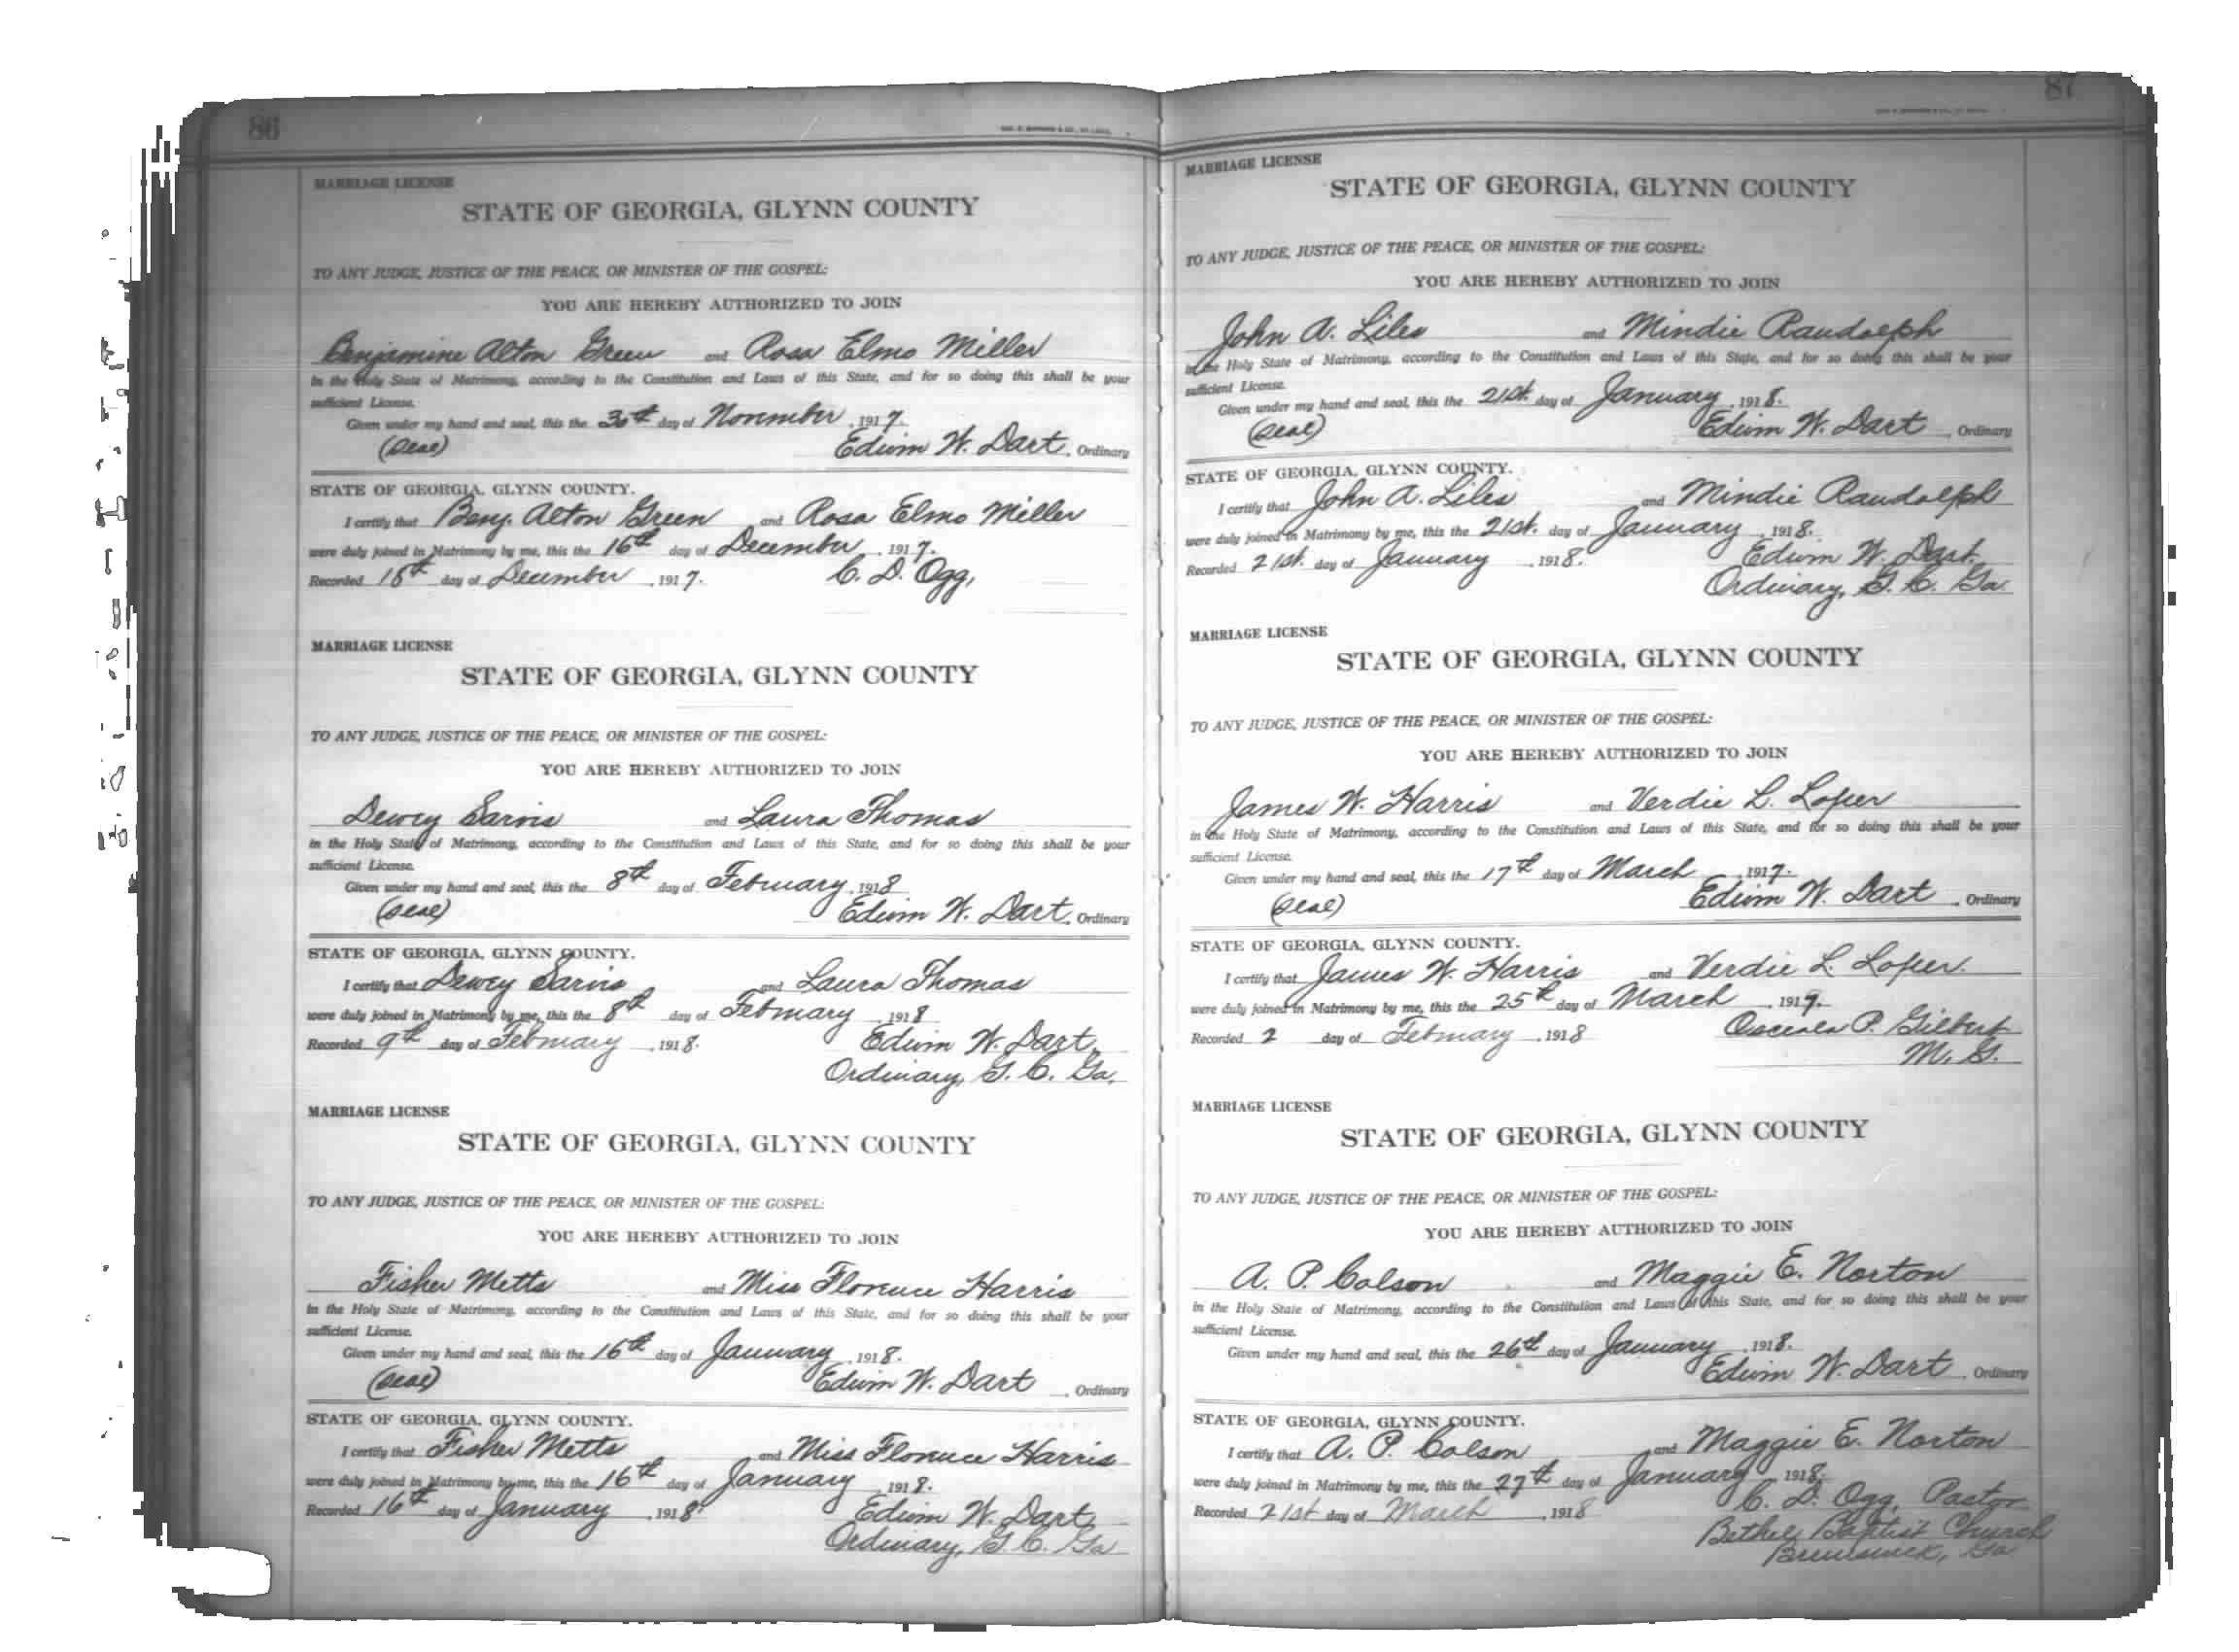 86
MARRIAGE LICENSE
STATE OF GEORGIA, GLYNN COUNTY
TO ANY JUDGE, JUSTICE OF THE PEACE, OR MINISTER OF THE GOSPEL:
YOU ARE HEREBY AUTHORIZED TO JOIN
Benjamine Alton Green and Rosa Elmo Miller
in the Holy State of Matrimony, according to the Constitution and Laws of this State, and for so doing this shall be your
sufficient License.
Given under my hand and seal, this the 30th day of November, 1917.
(Seal) Edwin W. Dart, Ordinary
STATE OF GEORGIA, GLYNN COUNTY.
I certify that Benj. Alton Green and Rosa Elmo Miller
were duly joined in Matrimony by me, this the 16th day of December, 1917.
Recorded 18th day of December, 1917. C. D. Ogg,
MARRIAGE LICENSE
STATE OF GEORGIA, GLYNN COUNTY
TO ANY JUDGE, JUSTICE OF THE PEACE, OR MINISTER OF THE GOSPEL:
YOU ARE HEREBY AUTHORIZED TO JOIN
Dewey Sarvis and Laura Thomas
in the Holy State of Matrimony, according to the Constitution and Laws of this State, and for so doing this shall be your
sufficient License.
Given under my hand and seal, this the 8th day of February, 1918
(Seal) Edwin W. Dart, Ordinary
STATE OF GEORGIA, GLYNN COUNTY.
I certify that Dewey Sarvis and Laura Thomas
were duly joined in Matrimony by me, this the 8th day of February, 1918
Recorded 9th day of February, 1918. Edwin W. Dart,
Ordinary, G. C. Ga.
MARRIAGE LICENSE
STATE OF GEORGIA, GLYNN COUNTY
TO ANY JUDGE, JUSTICE OF THE PEACE, OR MINISTER OF THE GOSPEL:
YOU ARE HEREBY AUTHORIZED TO JOIN
Fisher Metts and Miss Florence Harris
in the Holy State of Matrimony, according to the Constitution and Laws of this State, and for so doing this shall be your
sufficient License.
Given under my hand and seal, this the 16th day of January, 1918.
(Seal) Edwin W. Dart, Ordinary
STATE OF GEORGIA, GLYNN COUNTY.
I certify that Fisher Metts and Miss Florence Harris
were duly joined in Matrimony by me, this the 16th day of January, 1918.
Recorded 16th day of January, 1918 Edwin W. Dart,
Ordinary, G. C. Ga
87
MARRIAGE LICENSE
STATE OF GEORGIA, GLYNN COUNTY
TO ANY JUDGE, JUSTICE OF THE PEACE, OR MINISTER OF THE GOSPEL:
YOU ARE HEREBY AUTHORIZED TO JOIN
John A. Liles and Mindie Randolph
in the Holy State of Matrimony, according to the Constitution and Laws of this State, and for so doing this shall be your
sufficient License.
Given under my hand and seal, this the 21st. day of January, 1918.
(Seal) Edwin W. Dart, Ordinary
STATE OF GEORGIA, GLYNN COUNTY.
I certify that John A. Liles and Mindie Randolph
were duly joined in Matrimony by me, this the 21st. day of January, 1918.
Recorded 21st. day of January, 1918. Edwin W. Dart.
Ordinary, G. C. Ga.
MARRIAGE LICENSE
STATE OF GEORGIA, GLYNN COUNTY
TO ANY JUDGE, JUSTICE OF THE PEACE, OR MINISTER OF THE GOSPEL:
YOU ARE HEREBY AUTHORIZED TO JOIN
James W. Harris and Verdie L. Loper
in the Holy State of Matrimony, according to the Constitution and Laws of this State, and for so doing this shall be your
sufficient License.
Given under my hand and seal, this the 17th day of March, 1917.
(Seal) Edwin W. Dart, Ordinary
STATE OF GEORGIA, GLYNN COUNTY.
I certify that James W. Harris and Verdie L. Loper.
were duly joined in Matrimony by me, this the 25th day of March, 1917.
Recorded 2 day of February, 1918 Osceola P. Gilbert
M. G.
MARRIAGE LICENSE
STATE OF GEORGIA, GLYNN COUNTY
TO ANY JUDGE, JUSTICE OF THE PEACE, OR MINISTER OF THE GOSPEL:
YOU ARE HEREBY AUTHORIZED TO JOIN
A. P. Colson and Maggie E. Norton
in the Holy State of Matrimony, according to the Constitution and Laws of this State, and for so doing this shall be your
sufficient License.
Given under my hand and seal, this the 26th day of January, 1918.
Edwin W. Dart, Ordinary
STATE OF GEORGIA, GLYNN COUNTY.
I certify that A. P. Colson and Maggie E. Norton
were duly joined in Matrimony by me, this the 27th day of January, 1918.
Recorded 21st day of March, 1918 C. D. Ogg, Pastor
Bethel Baptist Church
Brunswick, Ga